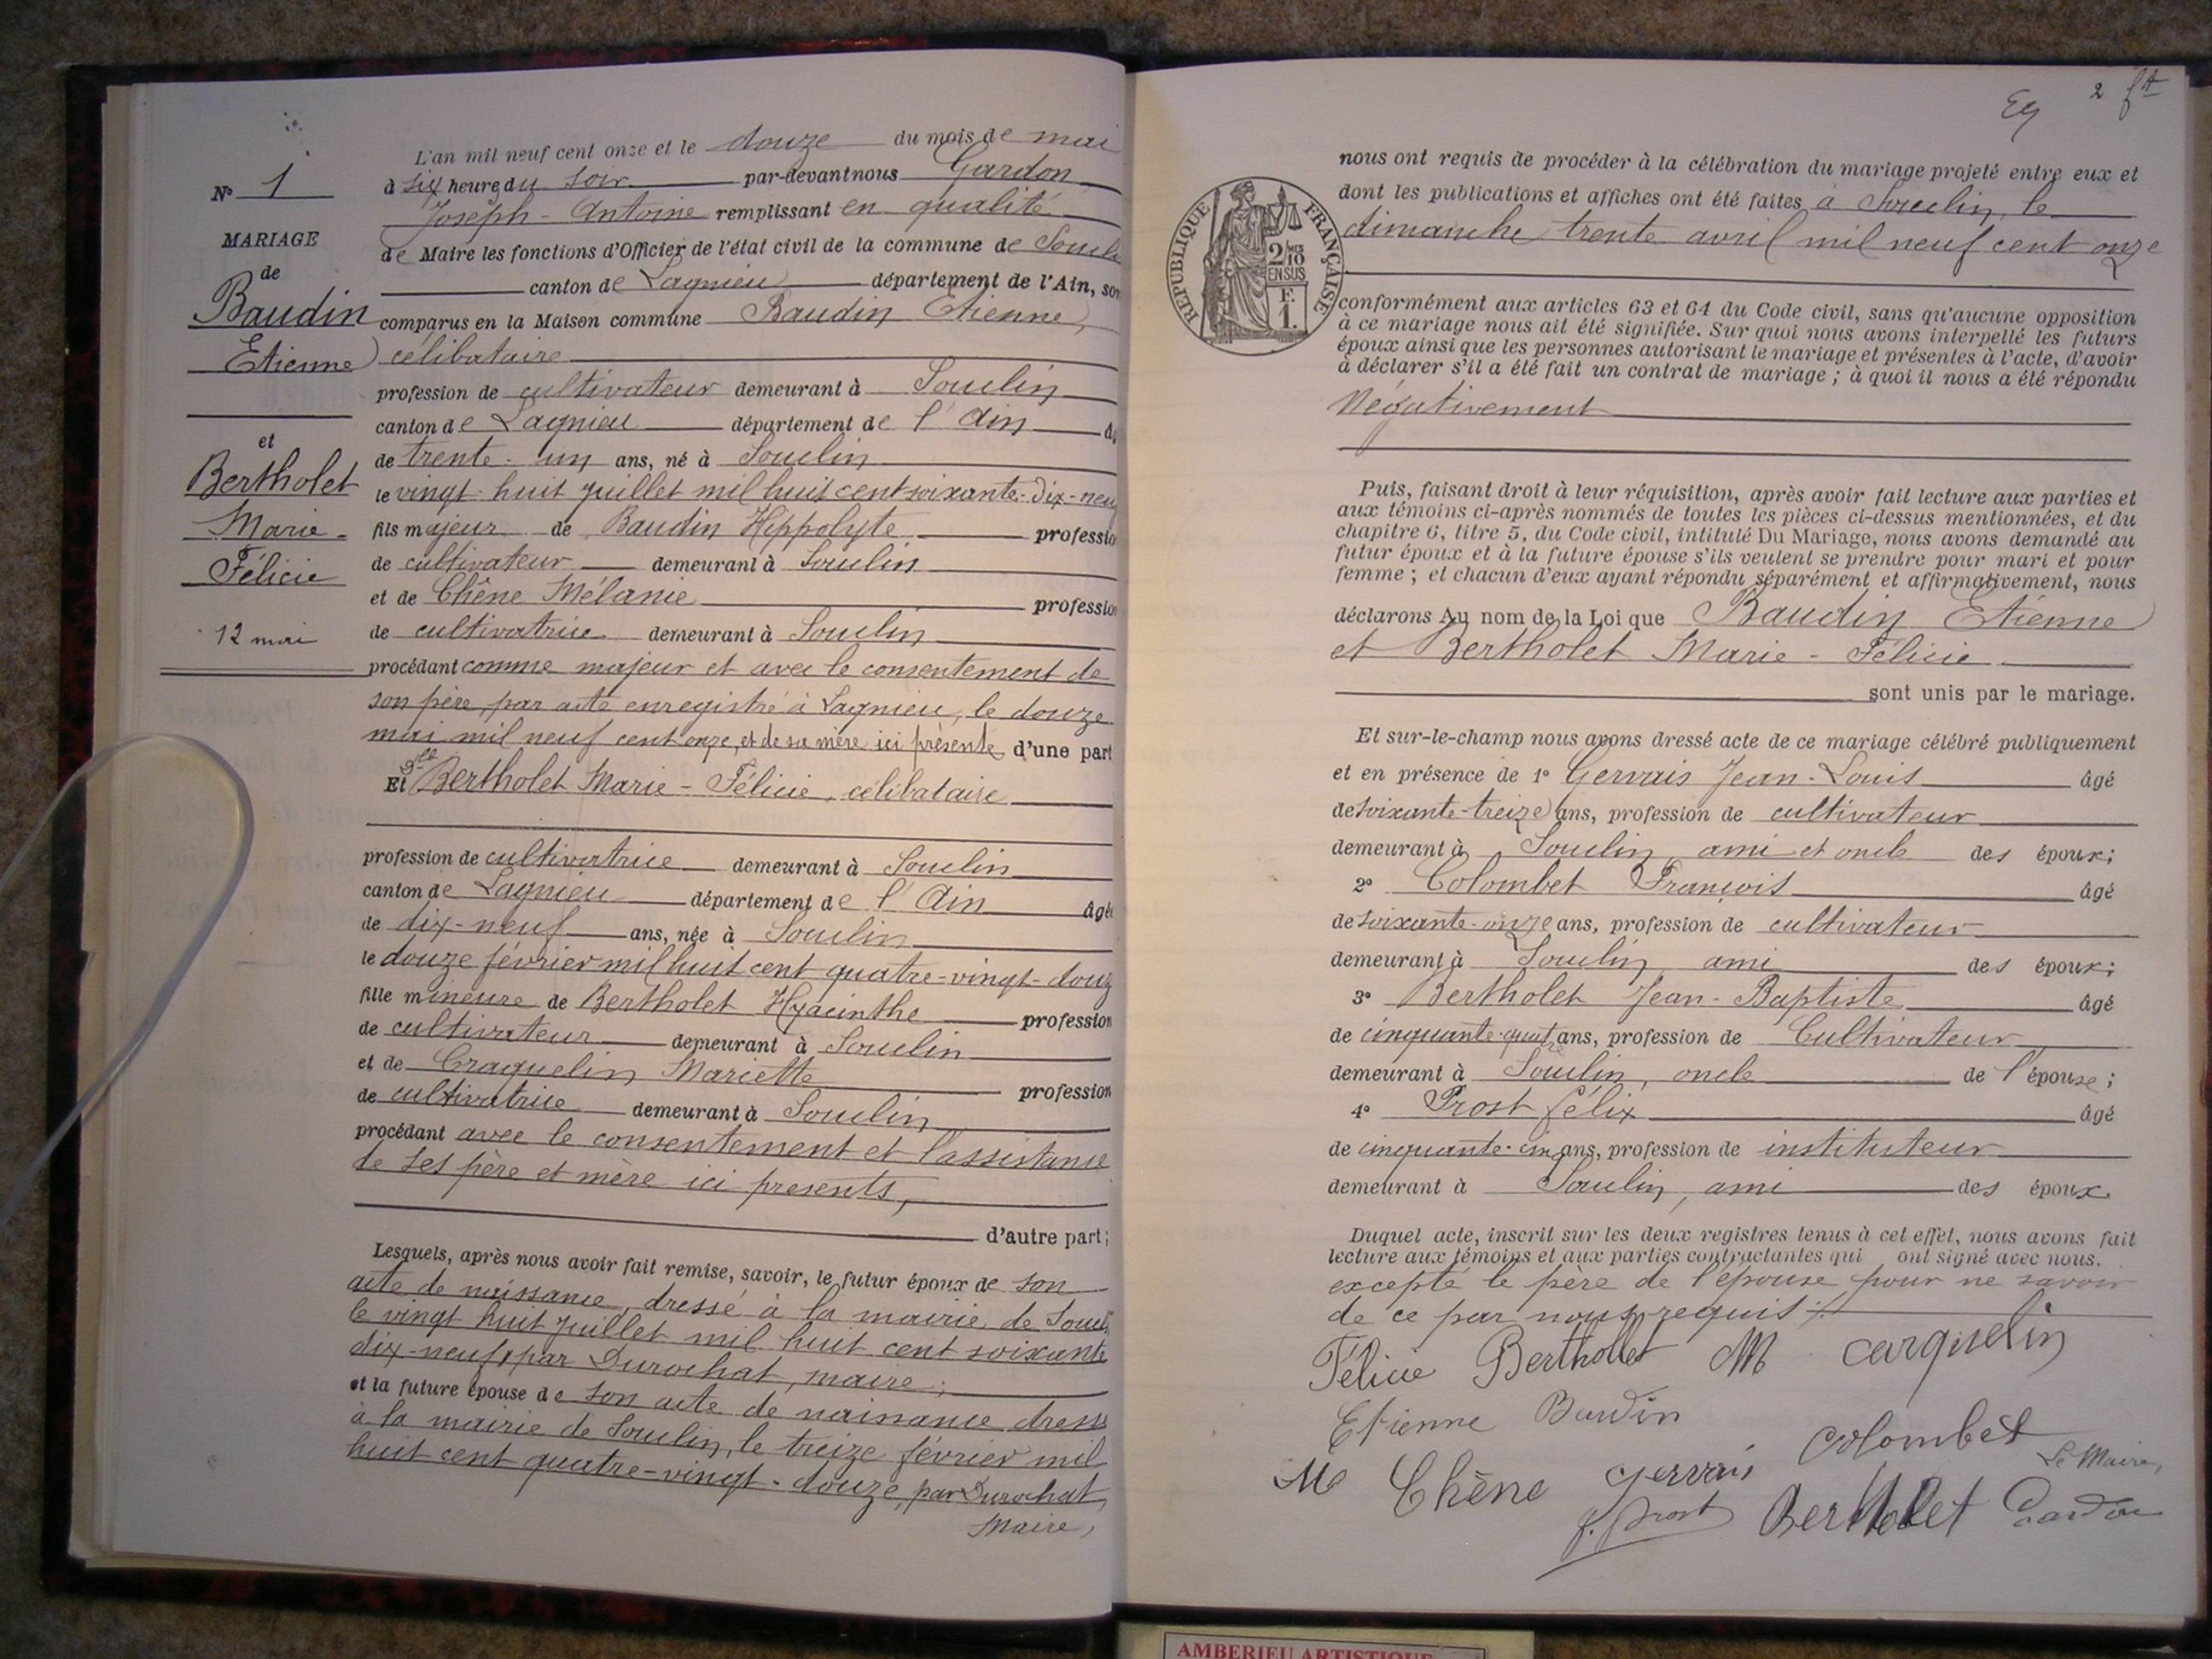 N° 1
MARIAGE
de
Baudin
Etienne
et
Bertholet
Marie-
Félicie
12 mai
L'an mil neuf cent onze et le douze du mois de mai
à six heure du soir par-devant nous Gardon
Joseph-Antoine remplissant en qualité
de Maire les fonctions d'Officier de l'état civil de la commune de Soucli
canton de Lagnieu département de l'Ain, son
comparus en la Maison commune Baudin Etienne,
célibataire
profession de cultivateur demeurant à Souclin
canton de Lagnieu département de l'Ain
de trente-un ans, né à Souclin
le vingt-huit juillet mil huit cent soixante-dix-neuf
fils majeur de Baudin Hippolyte professio
de cultivateur demeurant à Souclin
et de Chêne Mélanie profession
de cultivatrice demeurant à Souclin
procédant comme majeur et avec le consentement de
son père, par acte enregistré à Lagnieu, le douze
mai mil neuf cent onze, et de sa mère ici présente d'une part
Et Dlle Bertholet Marie-Félicie, célibataire
profession de cultivatrice demeurant à Souclin
canton de Lagnieu département de l'Ain âgée
de dix-neuf ans, née à Souclin
le douze février mil huit cent quatre-vingt-douz
fille mineure de Bertholet Hyacinthe profession
de cultivateur demeurant à Souclin
et de Craquelin Mariette profession
de cultivatrice demeurant à Souclin
procédant avec le consentement et l'assistance
de ses père et mère ici présents,
d'autre part;
Lesquels, après nous avoir fait remise, savoir, le futur époux de son
acte de naissance, dressé à la mairie de Soucli
le vingt huit juillet mil huit cent soixante
dix-neuf, par Durochat, maire;
et la future épouse de son acte de naissance dressé
à la mairie de Souclin, le treize février mil
huit cent quatre-vingt-douze, par Durochat,
Maire,
2 ft
nous ont requis de procéder à la célébration du mariage projeté entre eux et
dont les publications et affiches ont été faites à Souclin, le
dimanche trente avril mil neuf cent onze
RÉPUBLIQUE FRANÇAISE
2/10
EN SUS
F.
1.
conformément aux articles 63 et 64 du Code civil, sans qu'aucune opposition
à ce mariage nous ait été signifiée. Sur quoi nous avons interpellé les futurs
époux ainsi que les personnes autorisant le mariage et présentes à l'acte, d'avoir
à déclarer s'il a été fait un contrat de mariage; à quoi il nous a été répondu
Négativement
Puis, faisant droit à leur réquisition, après avoir fait lecture aux parties et
aux témoins ci-après nommés de toutes les pièces ci-dessus mentionnées, et du
chapitre 6, titre 5, du Code civil, intitulé Du Mariage, nous avons demandé au
futur époux et à la future épouse s'ils veulent se prendre pour mari et pour
femme; et chacun d'eux ayant répondu séparément et affirmativement, nous
déclarons Au nom de la Loi que Baudin Etienne
et Bertholet Marie-Félicie
sont unis par le mariage.
Et sur-le-champ nous avons dressé acte de ce mariage célébré publiquement
et en présence de 1° Gervais Jean-Louis âgé
de soixante-treize ans, profession de cultivateur
demeurant à Souclin, ami et oncle des époux;
2° Colombet François âgé
de soixante-onze ans, profession de cultivateur
demeurant à Souclin, ami des époux;
3° Bertholet Jean-Baptiste âgé
de cinquante-quatre ans, profession de Cultivateur
demeurant à Souclin, oncle de l'épouse;
4° Prost félix âgé
de cinquante-cinq ans, profession de instituteur
demeurant à Souclin, ami des époux.
Duquel acte, inscrit sur les deux registres tenus à cet effet, nous avons fait
lecture aux témoins et aux parties contractantes qui ont signé avec nous.
excepté le père de l'épouse pour ne savoir
de ce par nous requis./.
Félicie Berthollet M carquelin
Etienne Baudin
Colombet
Me Chêne gervais Le Maire,
f. Prost Bertholet Gardon
AMBERIEU ARTISTIQUE